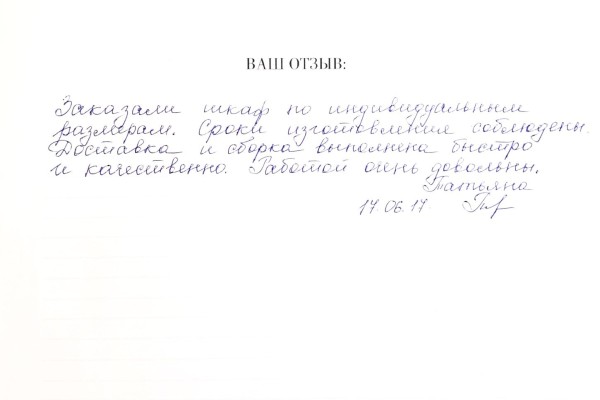 ВАШ ОТЗЫВ:
Заказали шкаф по индивидуальным
размерам. Сроки изготовления соблюдены.
Доставка и сборка выполнена быстро
и качественно. Работой очень довольны.
Татьяна
17.06.17